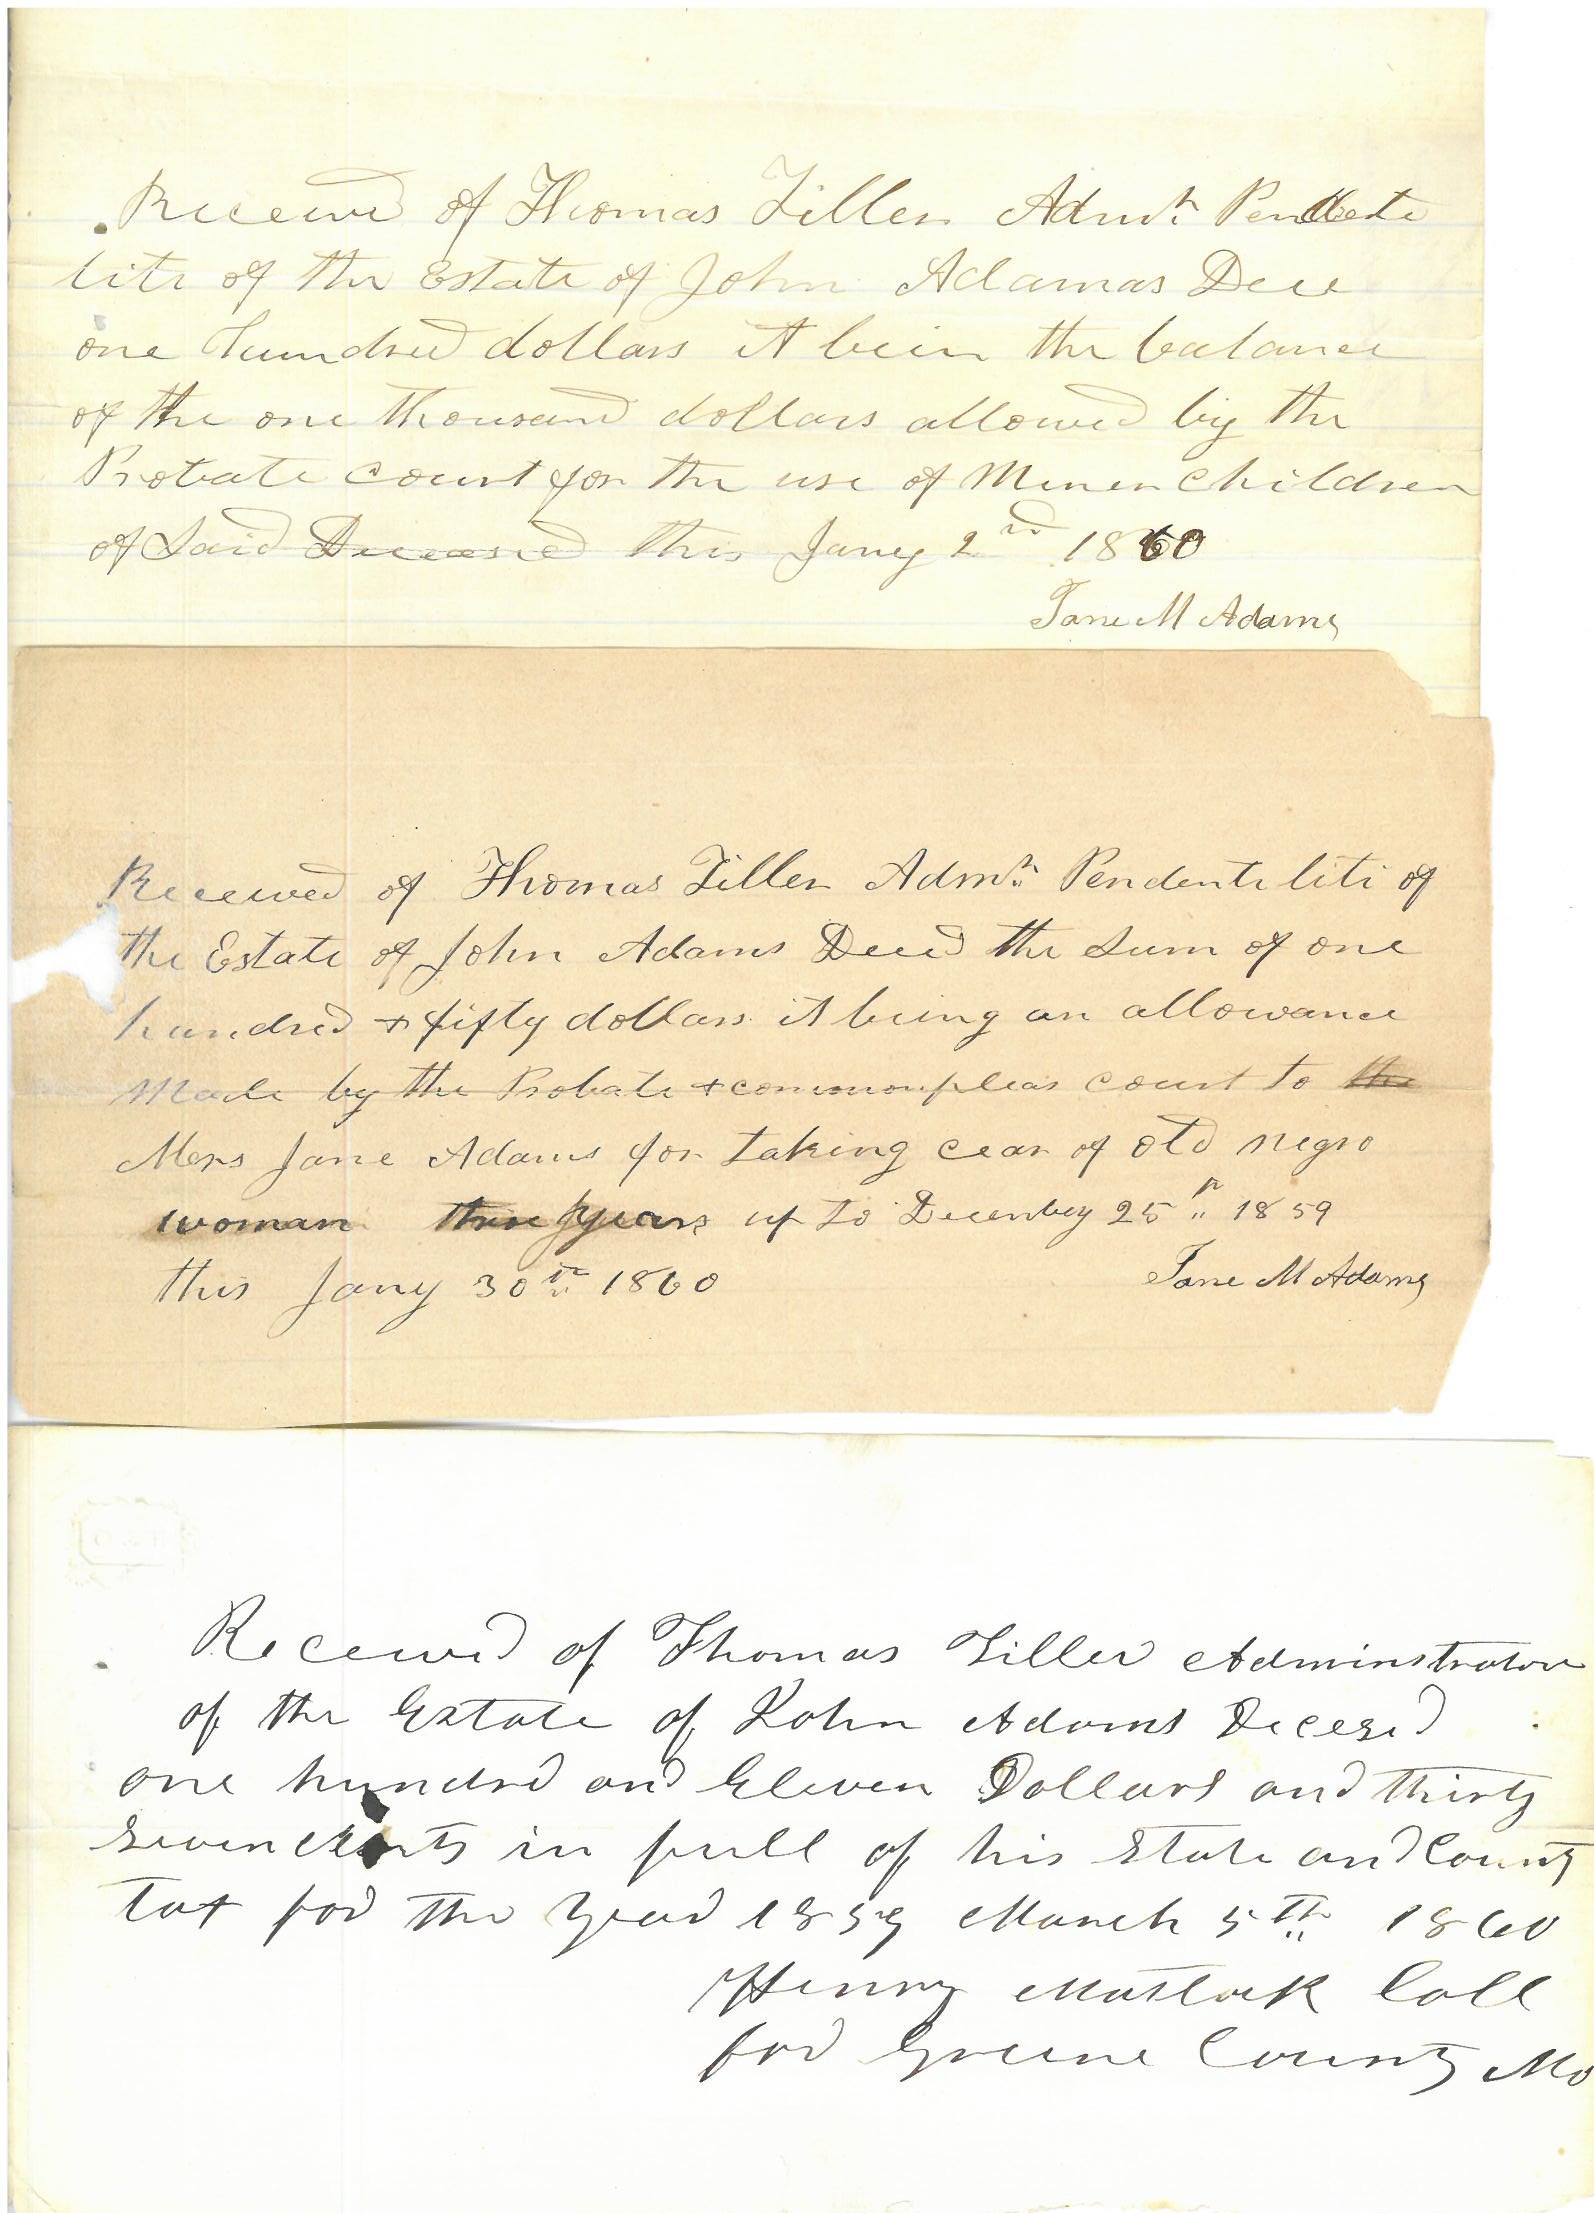 Received of Thomas Tiller Admr Pendente
lite of the Estate of John Adamas Dece
one hundred dollars it bein the balance
of the one thousand dollars allowed by the
Probate court for the use of Miner children
of Said Deceased this Jany 2nd 1860
Jane M Adams
Received of Thomas Tiller Admr Pendente liti of
the Estate of John Adams Decd the Sum of one
hundred + fifty dollars it being an allowance
Made by the Probate + common pleas court to the
Mers Jane Adams for taking cear of old negro
woman three years up to December 25th 1859
this Jany 30th 1860
Jane M Adams
Received of Thomas Tiller Adminstrator
of the Estate of John Adams Decesed
one hundrd and Eleven Dollars and thirty
seven cents in full of his State and County
Tax for the Year 1859 March 5th 1860
Henry Matlock Coll
for Greene County Mo